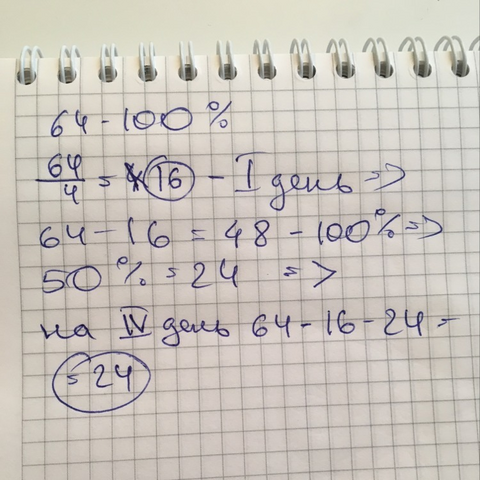 64 - 100 %
64/4 = 16 - I день =>
64 - 16 = 48 - 100% =>
50 % = 24 =>
на IV день 64 - 16 - 24 =
= 24